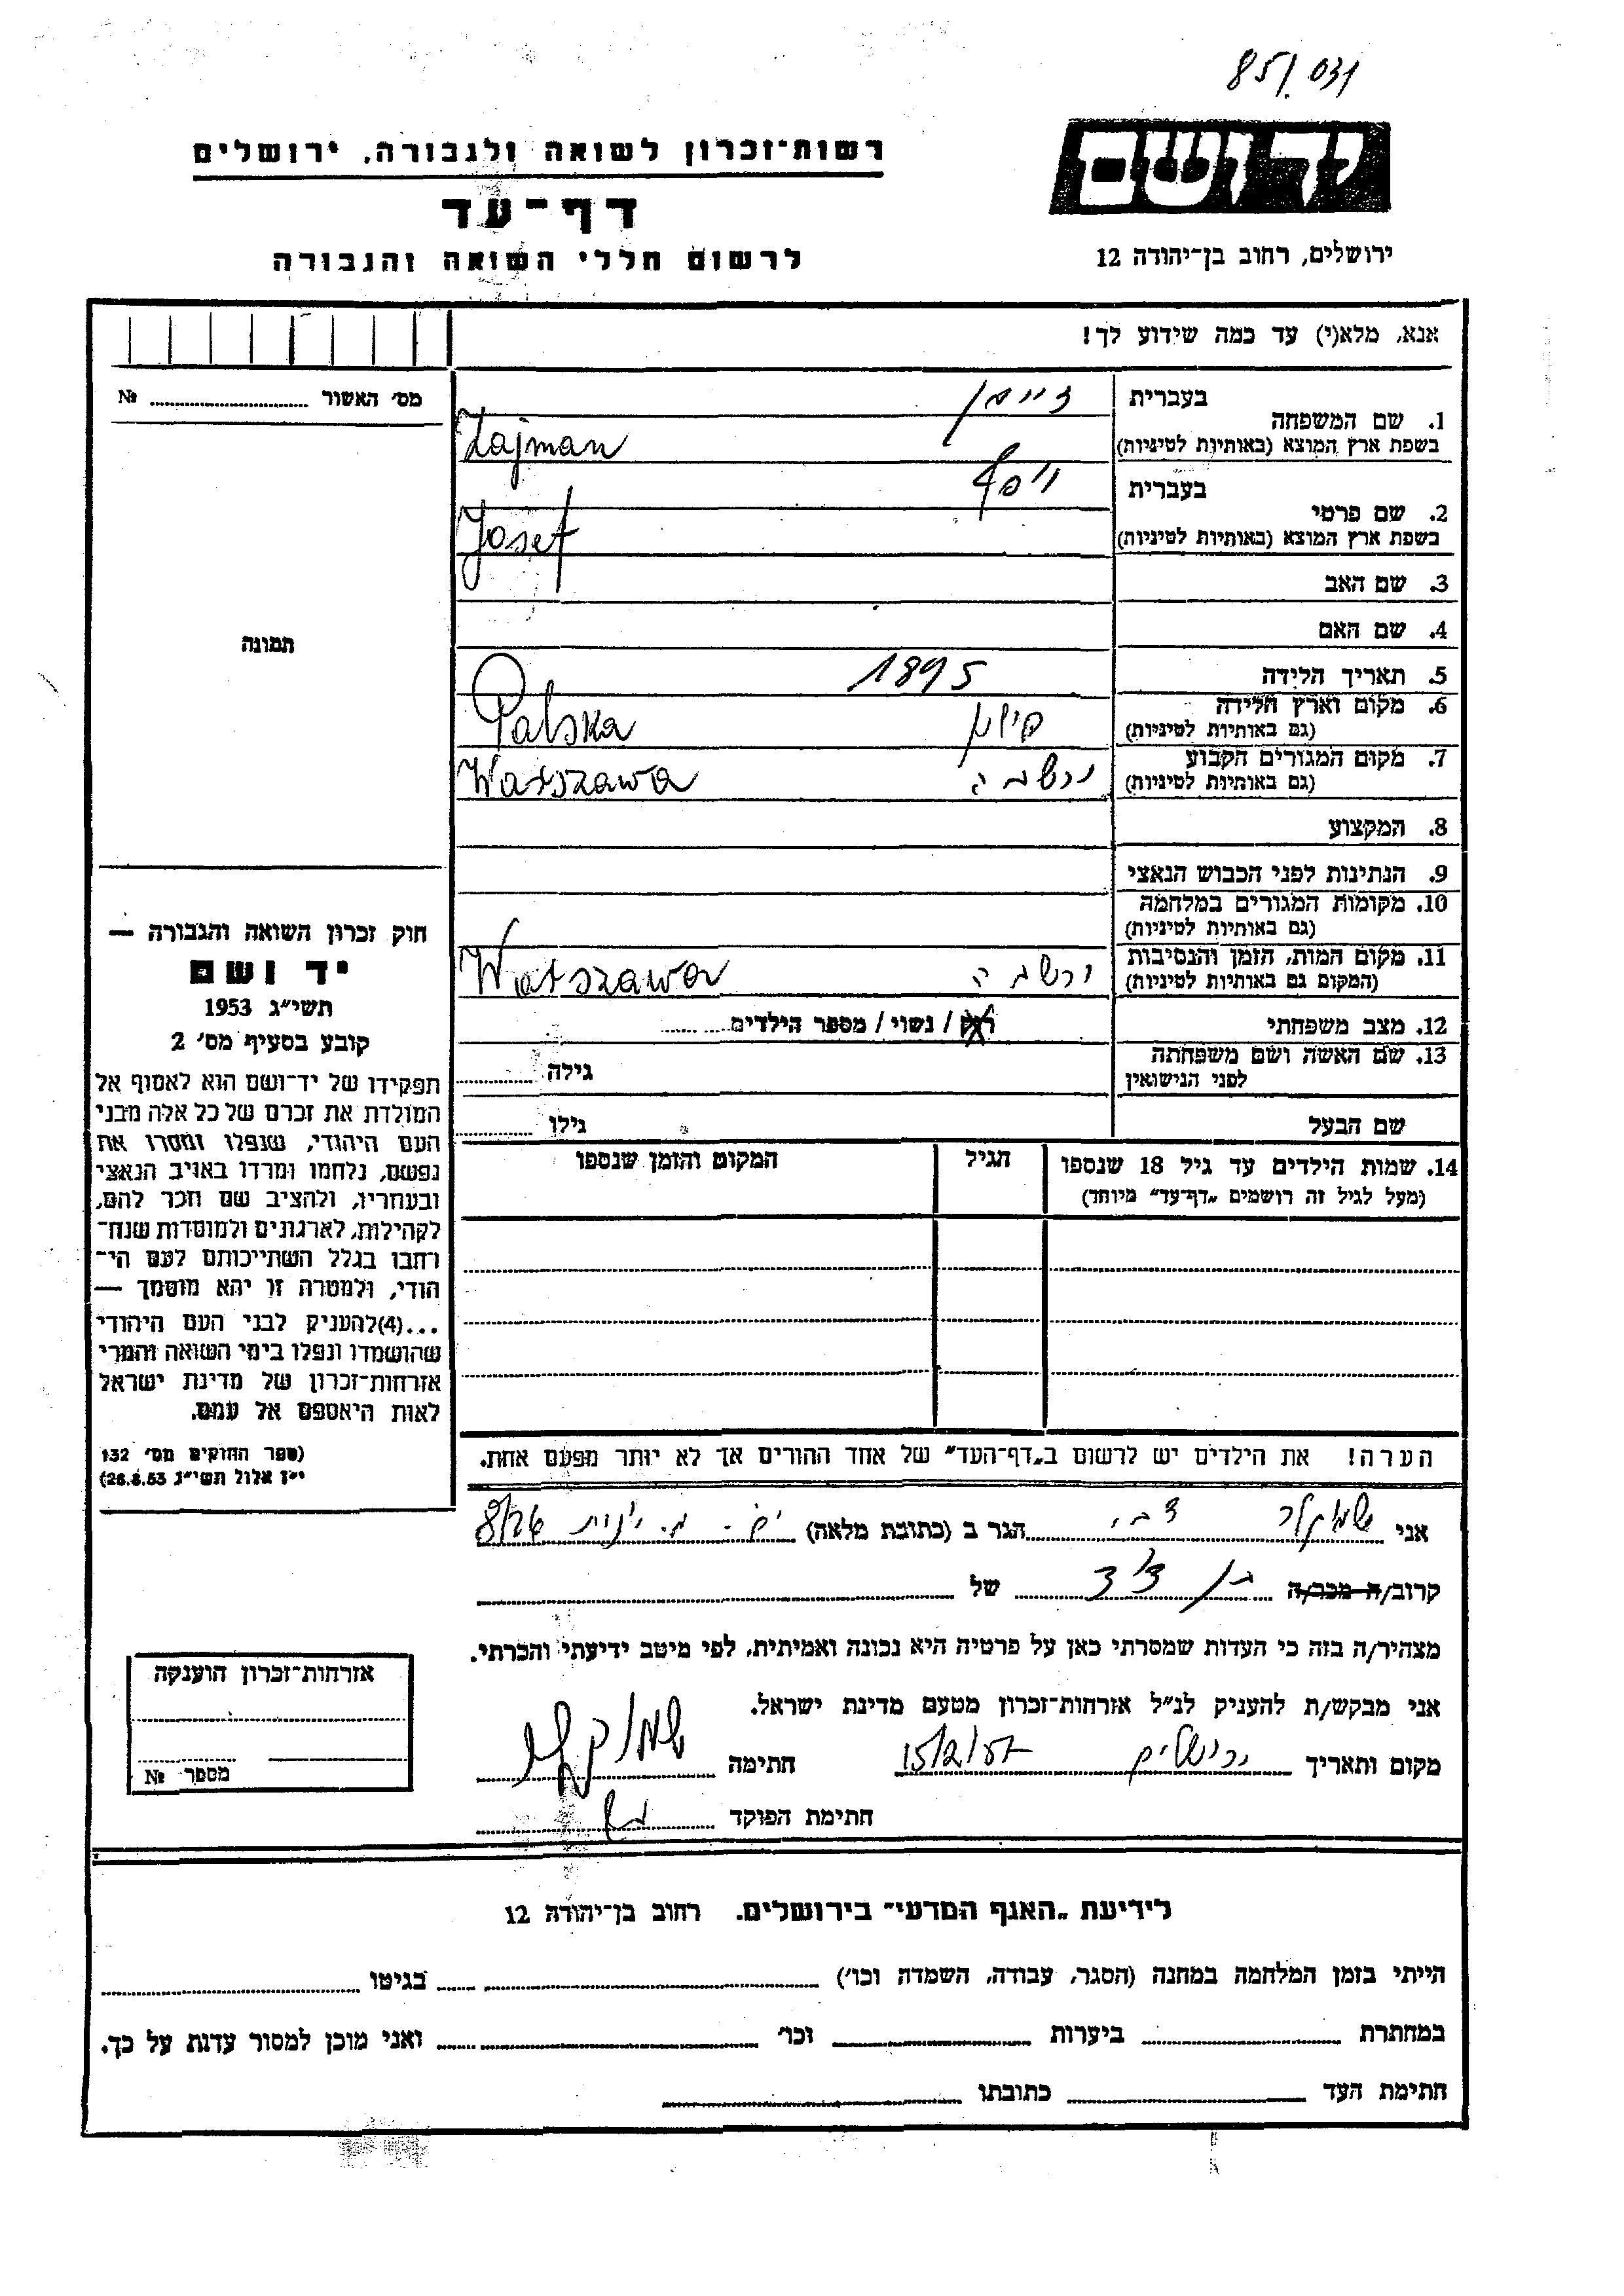 85/031
רשות־זכרון לשואה ולגבורה, ירושלים
דף־עד
לרשום חללי השואה והגבורה
יד ושם
ירושלים, רחוב בן־יהודה 12
אנא, מלא(י) עד כמה שידוע לך!
מס׳ האשור ........ №
תמונה
1. שם המשפחה
בעברית זיימן
בשפת ארץ המוצא (באותיות לטיניות) Zajman
2. שם פרטי
בעברית יוסף
בשפת ארץ המוצא (באותיות לטיניות) Josef
3. שם האב
4. שם האם
5. תאריך הלידה 1895
6. מקום וארץ הלידה פולין
(גם באותיות לטיניות) Polska
7. מקום המגורים הקבוע ורשבה
(גם באותיות לטיניות) Warszawa
8. המקצוע
9. הנתינות לפני הכבוש הנאצי
10. מקומות המגורים במלחמה
(גם באותיות לטיניות)
11. מקום המות, הזמן והנסיבות ורשבה
(המקום גם באותיות לטיניות) Warszawa
12. מצב משפחתי רוק / נשוי / מספר הילדים
13. שם האשה ושם משפחתה
לפני הנישואין גילה
שם הבעל גילו
14. שמות הילדים עד גיל 18 שנספו הגיל המקום והזמן שנספו
(מעל לגיל זה רושמים „דף־עד״ מיוחד)
הערה! את הילדים יש לרשום ב„דף־העד״ של אחד ההורים אך לא יותר מפעם אחת.
חוק זכרון השואה והגבורה —
יד ושם
תשי״ג 1953
קובע בסעיף מס׳ 2
תפקידו של יד־ושם הוא לאסוף אל
המולדת את זכרם של כל אלה מבני
העם היהודי, שנפלו ומסרו את
נפשם, נלחמו ומרדו באויב הנאצי
ובעוזריו, ולהציב שם וזכר להם,
לקהילות, לארגונים ולמוסדות שנח־
רבו בגלל השתייכותם לעם הי־
הודי, ולמטרה זו יהא מוסמך —
...(4)להעניק לבני העם היהודי
שהושמדו ונפלו בימי השואה והמרי
אזרחות־זכרון של מדינת ישראל
לאות היאספם אל עמם.
(ספר החוקים מס׳ 132
י״ז אלול תשי״ג 28.8.53)
אני צבי הגר ב (כתובת מלאה)
קרוב/ה מכר/ה בן דוד של
מצהיר/ה בזה כי העדות שמסרתי כאן על פרטיה היא נכונה ואמיתית, לפי מיטב ידיעתי והכרתי.
אני מבקש/ת להעניק לנ״ל אזרחות־זכרון מטעם מדינת ישראל.
מקום ותאריך ירושלים 15/2/57 חתימה
חתימת הפוקד
אזרחות־זכרון הוענקה
מספר №
לידיעת „האגף המדעי״ בירושלים. רחוב בן־יהודה 12
הייתי בזמן המלחמה במחנה (הסגר, עבודה, השמדה וכו׳) בגיטו
במחתרת ביערות וכו׳ ואני מוכן למסור עדות על כך.
חתימת העד כתובתו